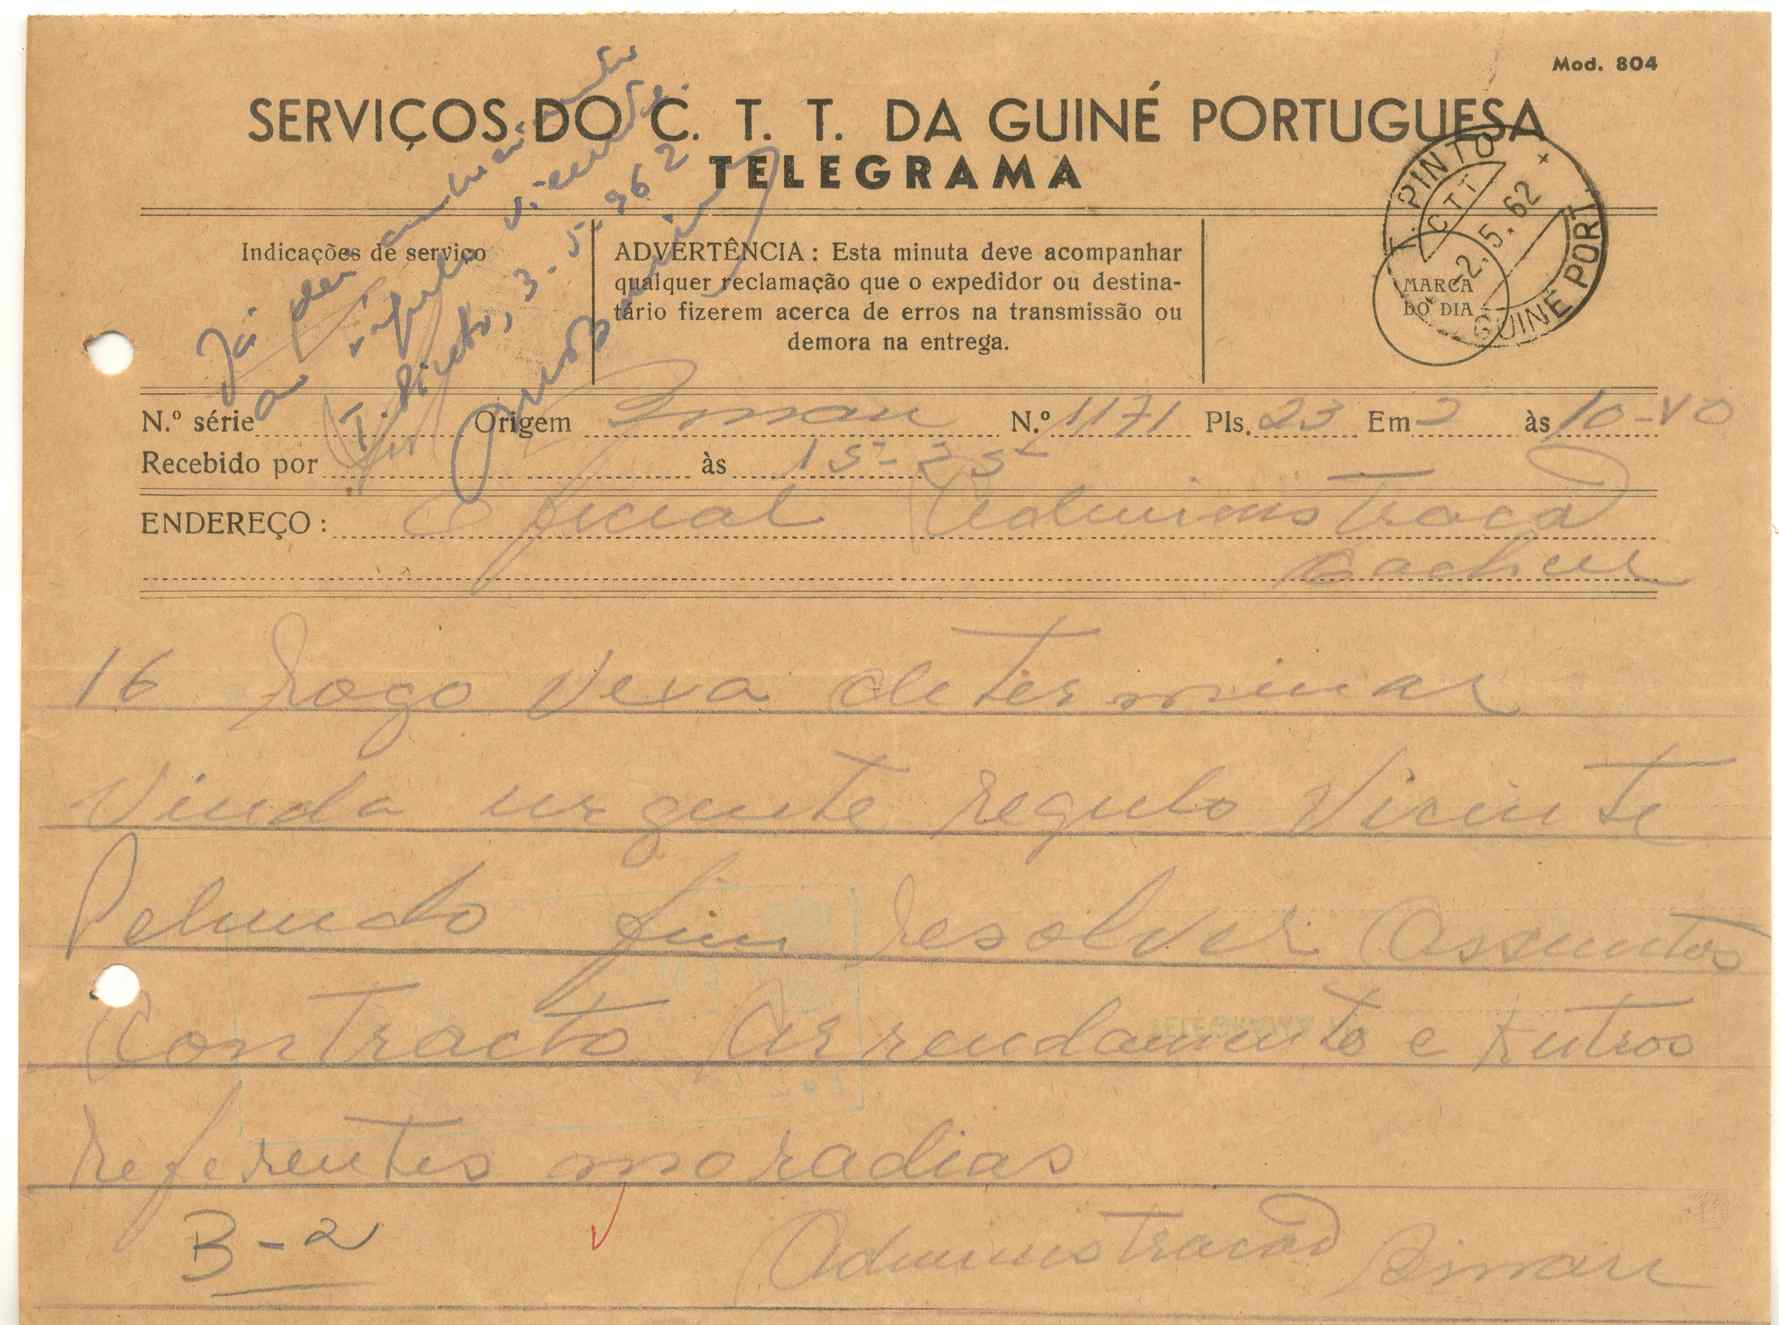 Mod. 804
SERVIÇOS DO C. T. T. DA GUINÉ PORTUGUESA
TELEGRAMA
Já dei conhecimento
ao régulo Vicente.
T. Pinto, 3-5-962
T. PINTO
CTT
-2. 5. 62
GUINÉ PORT.
MARCA
DO DIA
Indicações de serviço
ADVERTÊNCIA : Esta minuta deve acompanhar
qualquer reclamação que o expedidor ou destina-
tário fizerem acerca de erros na transmissão ou
demora na entrega.
N.º série Origem Bissau N.º 1171 Pls. 23 Em 2 às 10-40
Recebido por às 15-25
ENDEREÇO : Oficial Administração
Cacheu
16 Rogo Vexa determinar
Vinda urgente regulo Vicente
Pelundo fim resolver assuntos
Contracto Arrendamento e outros
referentes moradias
B-2
Administração Bissau